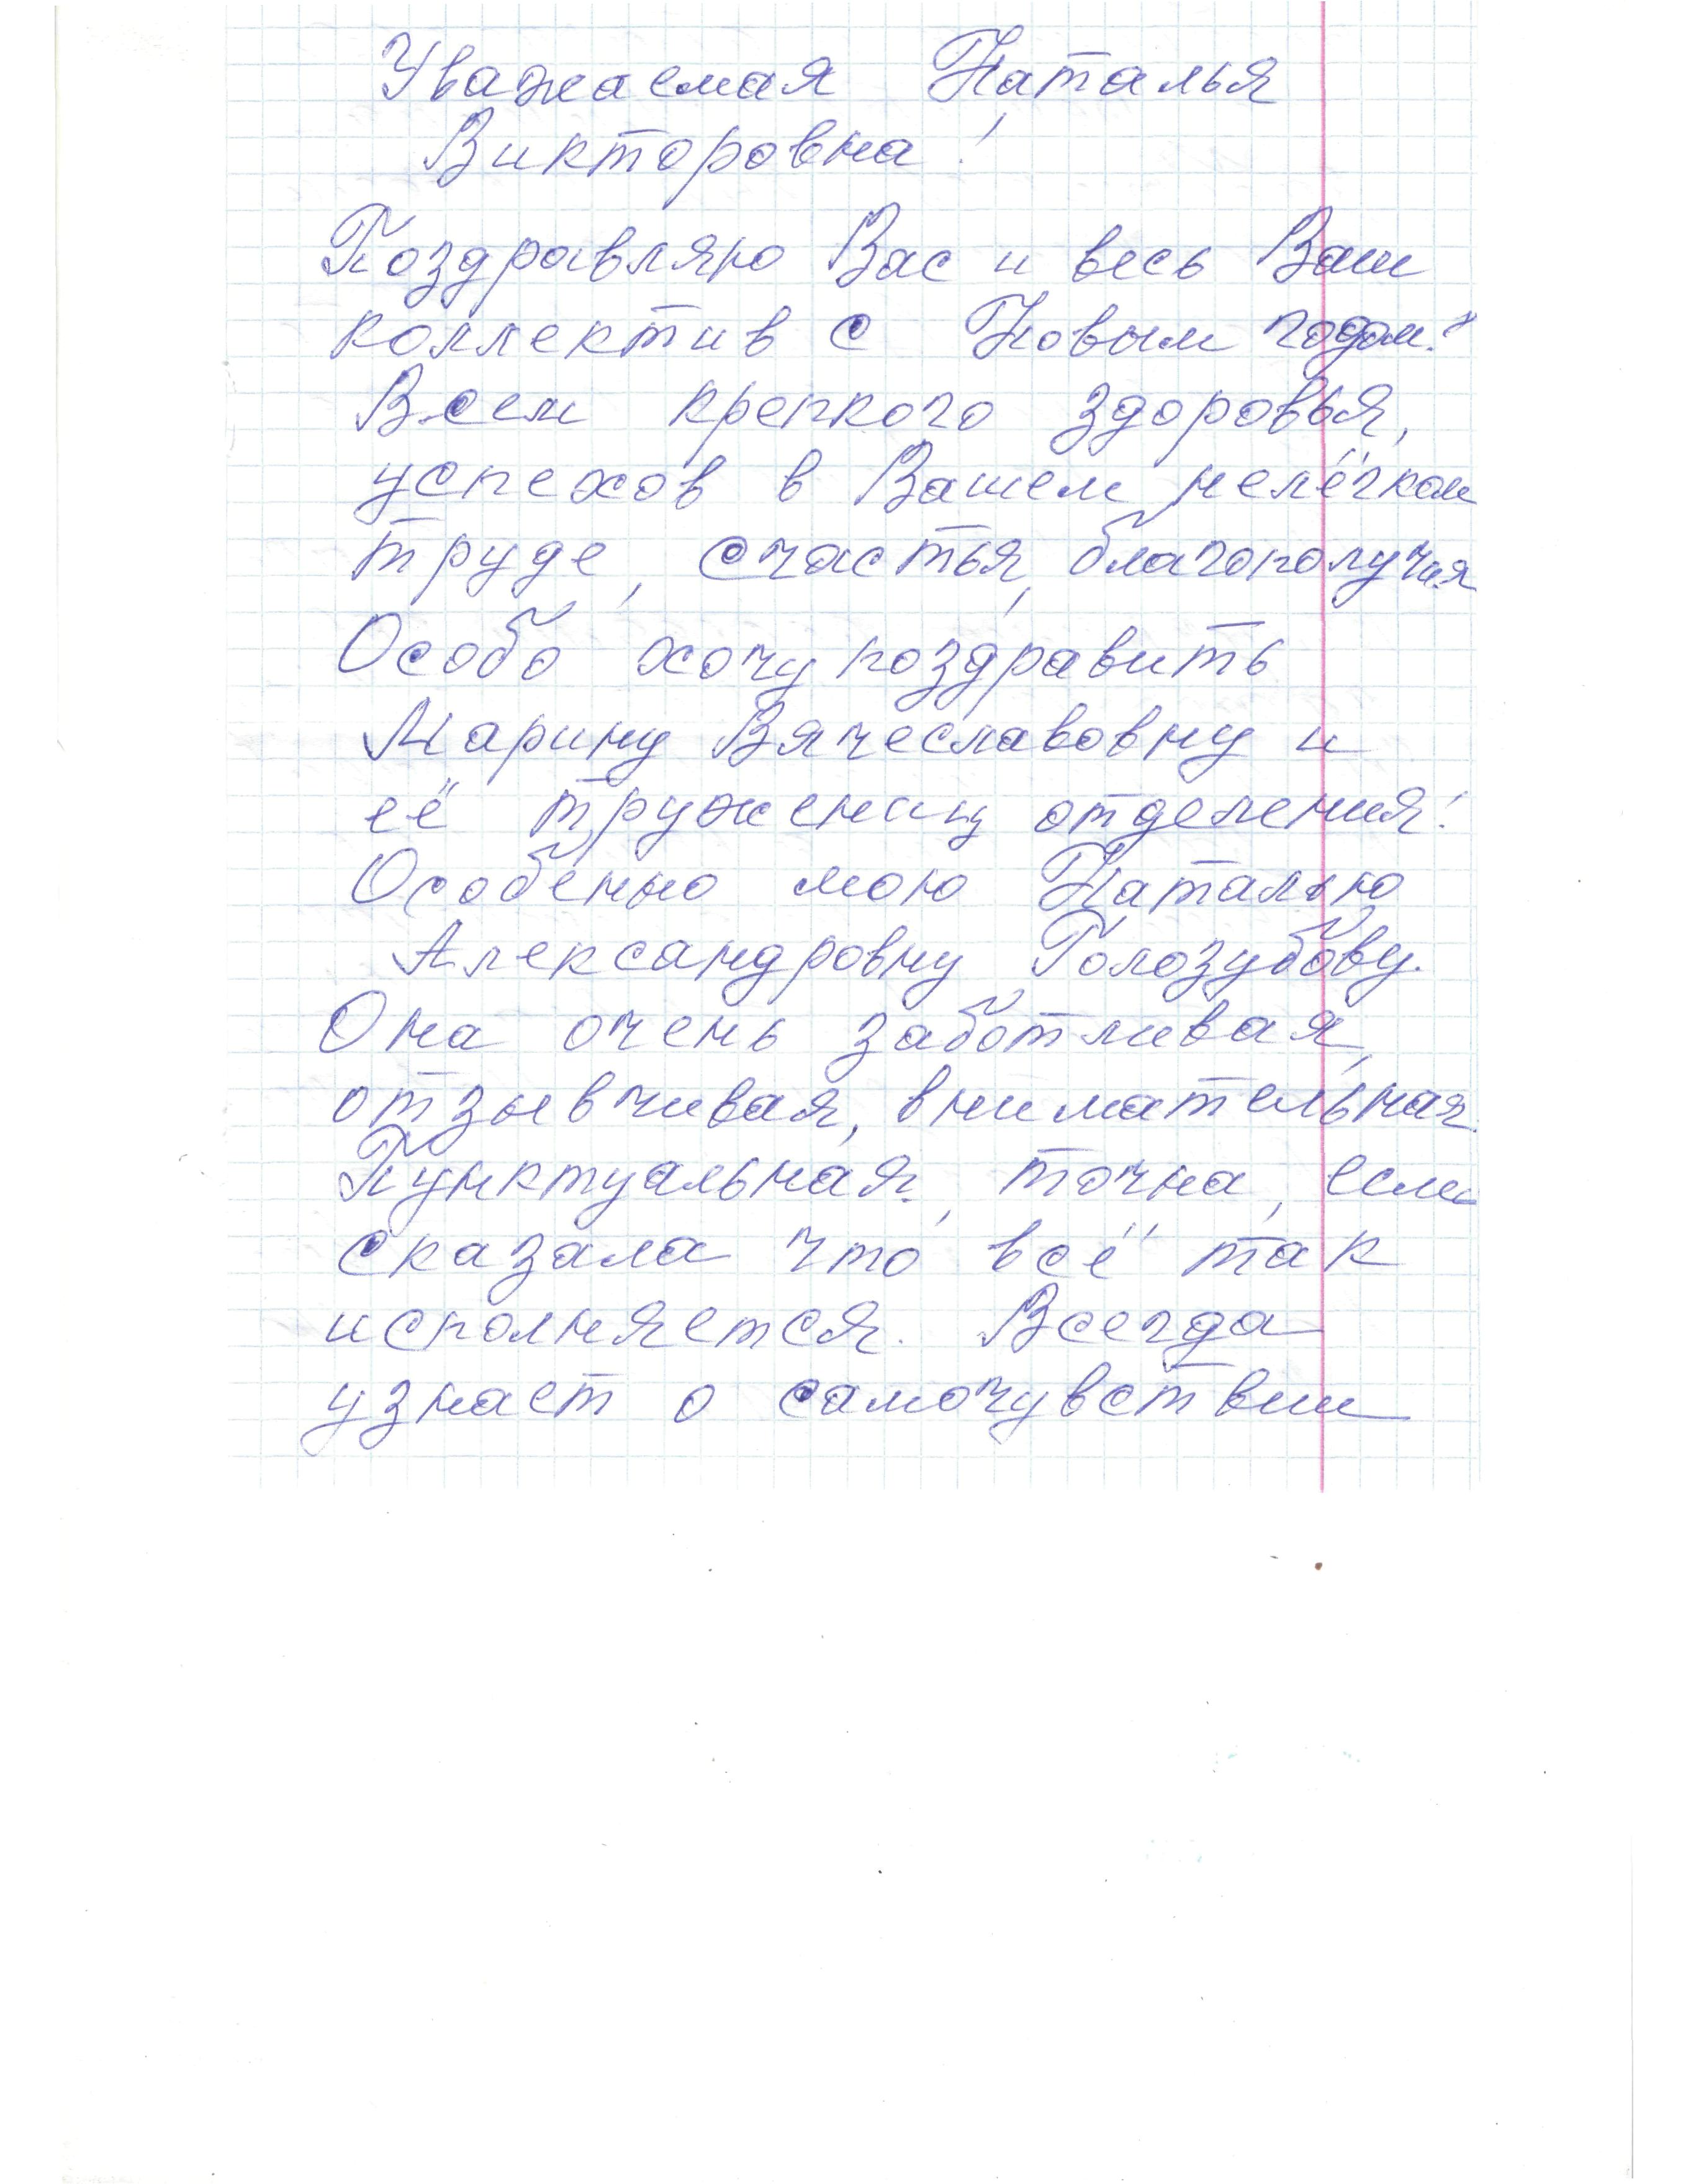 Уважаемая Наталья
Викторовна!
Поздравляю Вас и весь Ваш
коллектив с Новым годом!
Всем крепкого здоровья,
успехов в Вашем нелёгком
труде, счастья, благополучия
Особо хочу поздравить
Марину Вячеславовну и
её тружениц отделения!
Особенно мою Наталью
Александровну Голозубову.
Она очень заботливая,
отзывчивая, внимательная.
Пунктуальная, точна, если
сказала что всё так
исполняется. Всегда
узнает о самочувствии